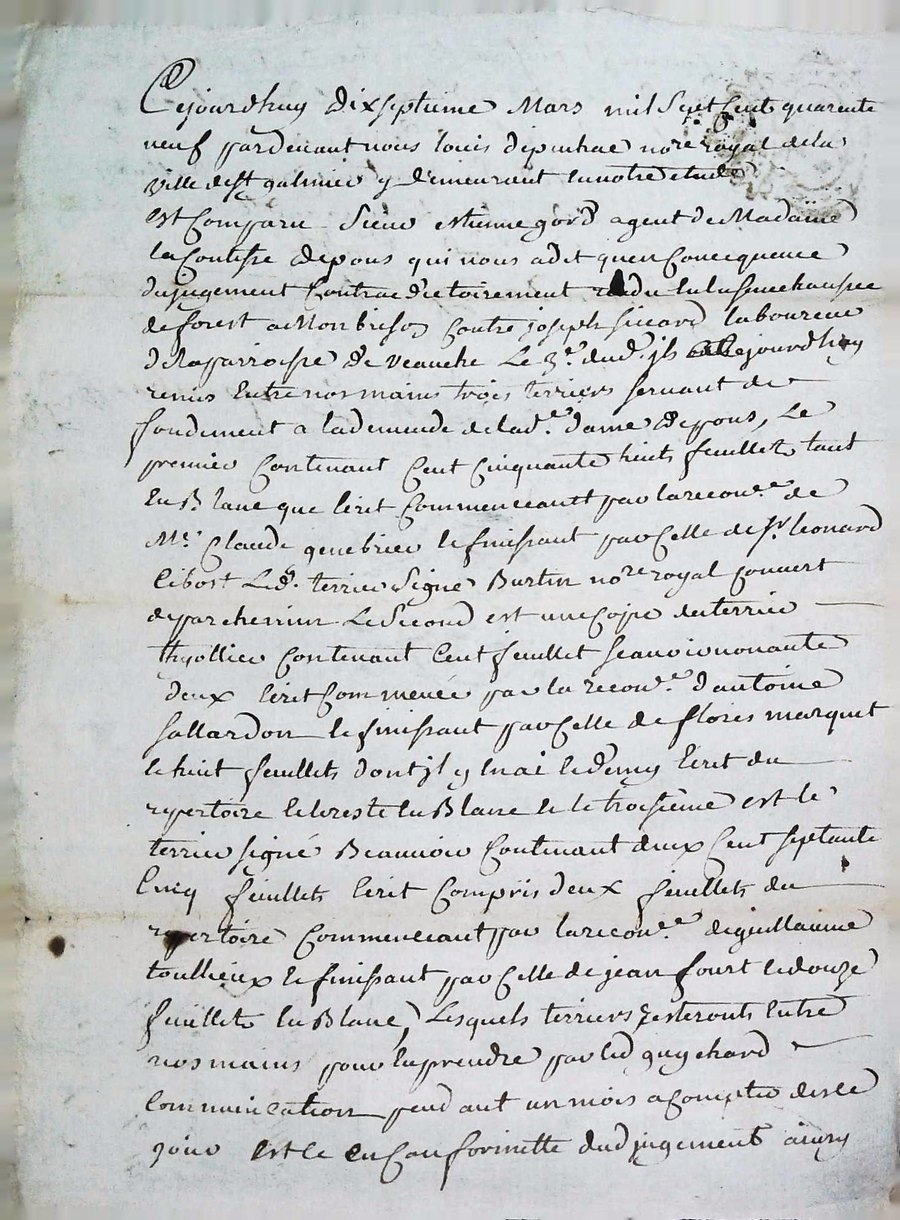 Cejourdhuy dixseptieme Mars mil Sept Cent quarente
neuf pardevant nous louis depinhac nore royal dela
ville de st galmier y demeurant en notre etude
est Comparu Sieur estienne gord agent de Madame
la Contesse depons qui nous a dit qu'en Concequence
du jugement Contradictoirement rendu en la senechaussee
de forest a Monbrison contre joseph sicard laboureur
de la parroisse de veauche Le 3e. dud. jl a cejourdhuy
remis Entre nos mains trois terriers servant de
fondement a lademende delad.e dame depons, Le
premier Contenant Cent Cinquante huits feuillets tant
En Blanc que Ecrit Commenceant par la recon.ce de
Mr. Claude genebrier le finissant par Celle de sr. leonard
Libost Led. terrier Signé Burtin nore royal Couvert
de parchemin Le Second est une Copie du terrier
thyollier Contenant Cent feuillet scavoir nonante
deux Ecrit Commencée par la recon.ce d'antoine
Sallardon le finissant par Celle de flores marquet
le huit feuillets dont jl y En ai le demy Ecrit du
repertoire le le reste En Blanc le le troisieme est le
terrier signé Beauvoir Contenant deux Cent septante
Cinq feuillets Ecrit Compris deux feuillets du
repertoire Commenceant par la recon.ce de guillaume
toullieux le finissant par Celle de jean fourt le douze
feuillets En Blanc, Lesquels terriers resteronts Entre
nos mains pour En prendre par led
Communication pend ant un mois a Compter de ce
jour est ce en Conformitté dud jugement ainsy